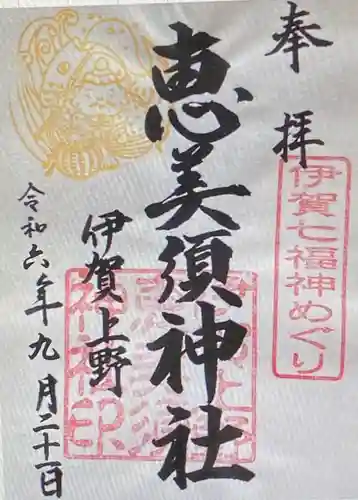 奉拝
伊賀七福神めぐり
恵美須神社
伊賀上野
令和六年九月二十一日